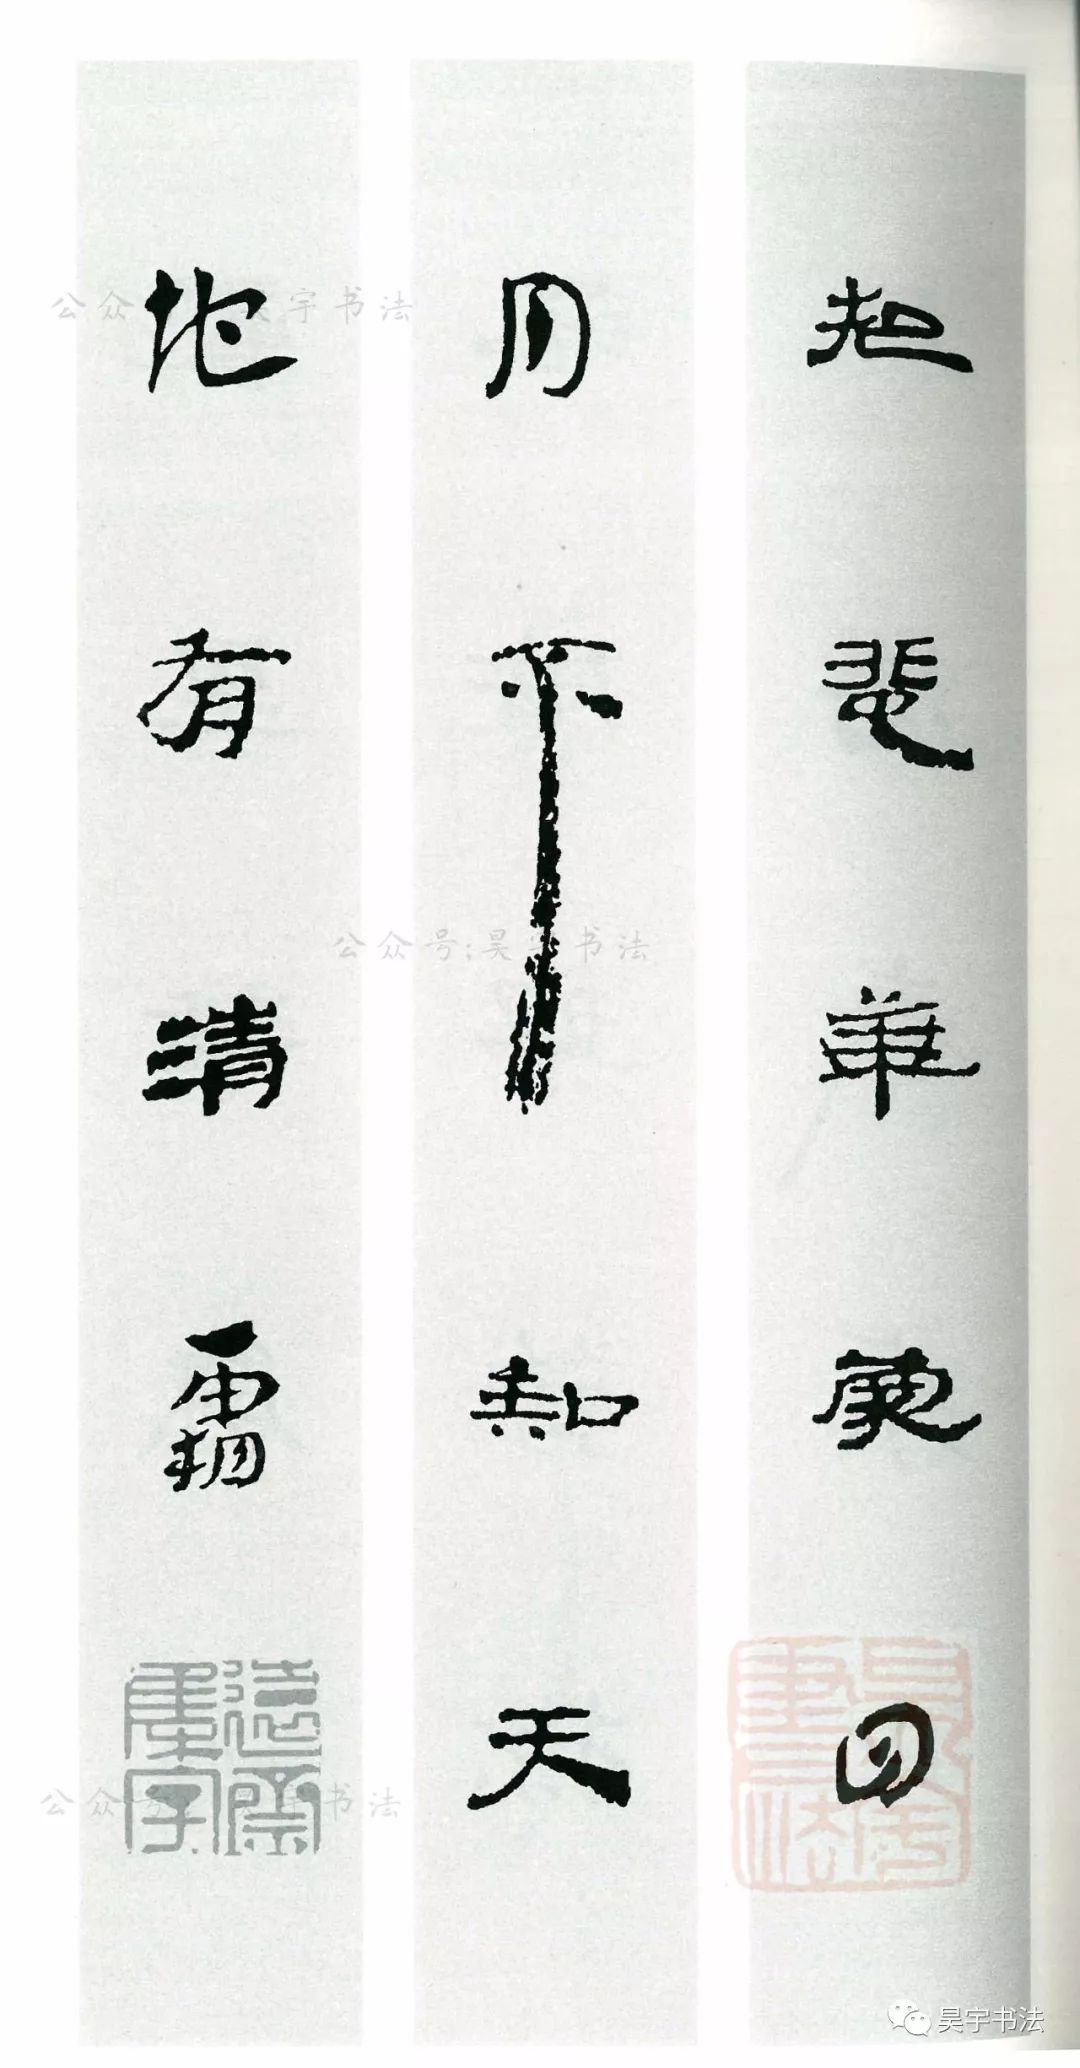 華夢回
月不知天
地有清霜
公众号:昊宇书法
公众号:昊宇书法
公众号:昊宇书法
昊宇書法
昊宇书法